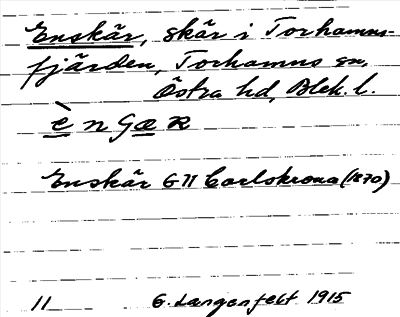 Enskär, skär i Torhamns-
fjärden, Torhamns sn,
Östra hd, Blek. l.
è n g æ R
Enskär G11 Carlskrona (1870)
11 G. Langenfelt 1915